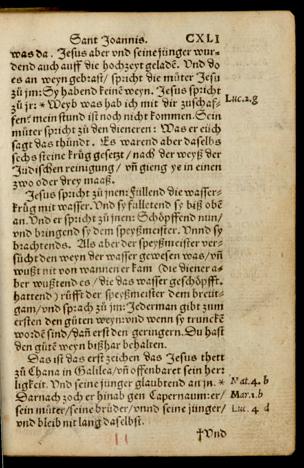 Sant Joannis. CXLI
was da. Jesus aber vnd seine jünger wur⸗
dend auch auff die hochzeyt geladē. Vnd do
es an weyn gebrast/ spricht die müter Jesu
zů jm: Sy habend keinē weyn. Jesus spricht
zů jr: * Weyb was hab ich mit dir zuschaf⸗ Luc.2.g
fen: mein stund ist noch nit kommen. Sein
můter spricht zů den dieneren: Was er eüch
sagt das thůndt. Es warend aber daselbs
sechs steine krůg gesetzt/ nach der weyß der
Jüdischen reinigung/ vn̄ gieng ye in einen
zwo oder drey maaß.
Jesus spricht zů jnen: Füllend die wasser⸗
krůg mit wasser. Vnd sy fülletend sy biß obē
an. Vnd er spricht zů jnen: Schöpffend nun/
vnd bringend sy dem speyßmeister. Vnnd sy
brachtends. Als aber der speyßmeister ver⸗
sůcht den weyn der wasser gewesen was/ vn̄
wußt nit von wannen er kam (die diener a⸗
ber wußtend es/ die das wasser geschöpfft
hattend) růfft der speyßmeister dem breüt⸗
gam/ vnd sprach zů jm: Jederman gibt zum
ersten den gůten weyn: vnd wenn sy trunckē
wordē sind/ dañ erst den geringern. Du hast
den gůtē weyn bißhar behalten.
Das ist das erst zeichen das Jesus thett
zů Chana in Galilea/ vn̄ offenbaret sein her⸗
ligkeit. Vnd seine jünger glaubtend an jn. * Mat.4.b
Darnach zoch er hinab gen Capernaum: er/ Mar.1.b
sein můter/ seine brüder/ vnnd seine jünger/ Luc. 4 d
vnd bleib nit lang daselbst.
†Vnd